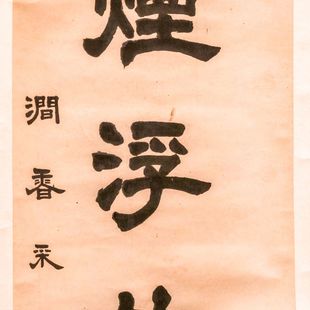 煙浮
澗香采